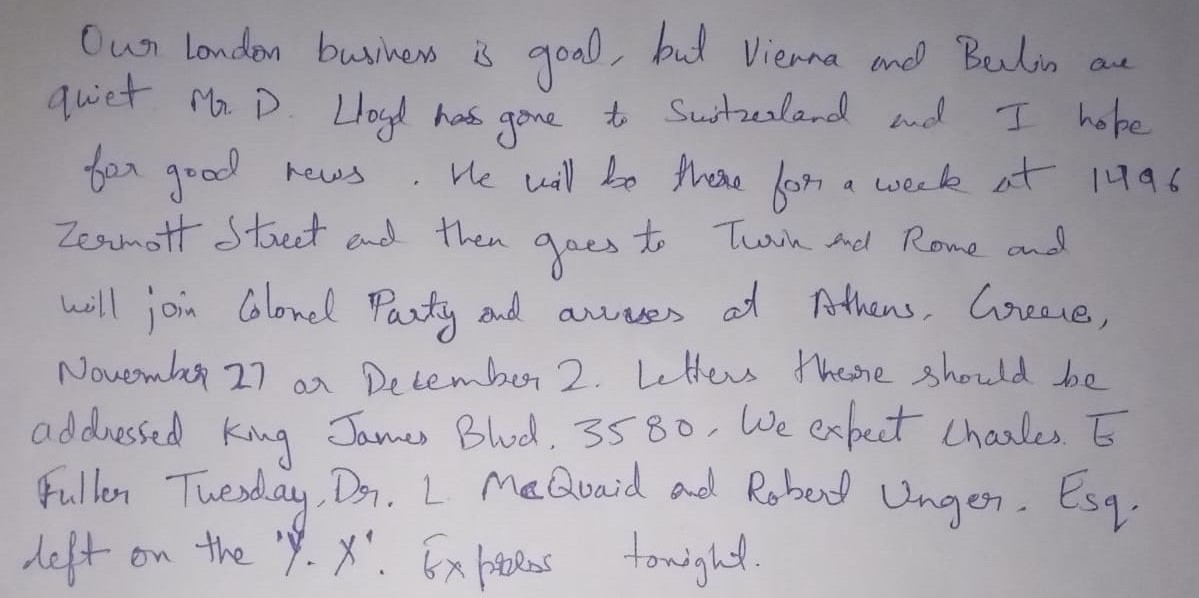 Our London business is good, but Vienna and Berlin are
quiet Mr. D. Lloyd has gone to Switzerland and I hope
for good news. He will be there for a week at 1496
Zermott Street and then goes to Turin and Rome and
will join Colonel Party and arrives at Athens, Greece,
November 27 or December 2. Letters there should be
addressed King James Blvd. 3580. We expect Charles. E
Fuller Tuesday, Dr. L McQuaid and Robert Unger. Esq.
left on the "Y. X". Express tonight.